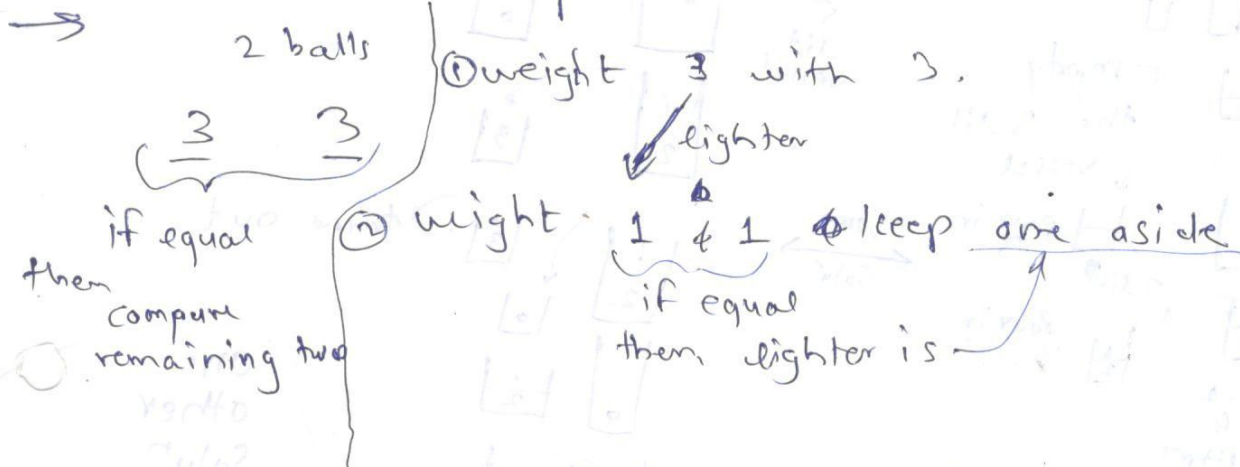 → 2 balls
3 3
if equal
then
compare
remaining two
① weight 3 with 3.
lighter
② weight 1 & 1 & keep one aside
if equal
then lighter is